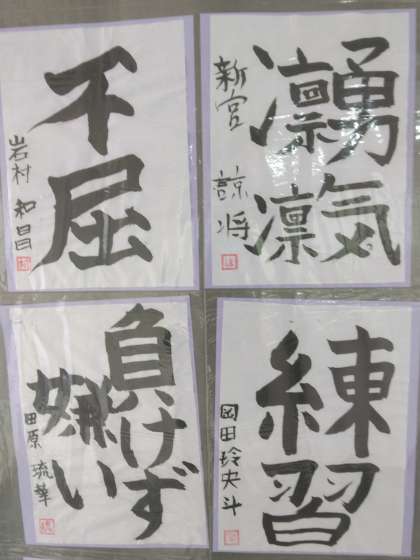 勇気
凛凛
新宮 諒将
不屈
岩村 和昌
練習
岡田玲央斗
負けず
嫌い
田原 琉華